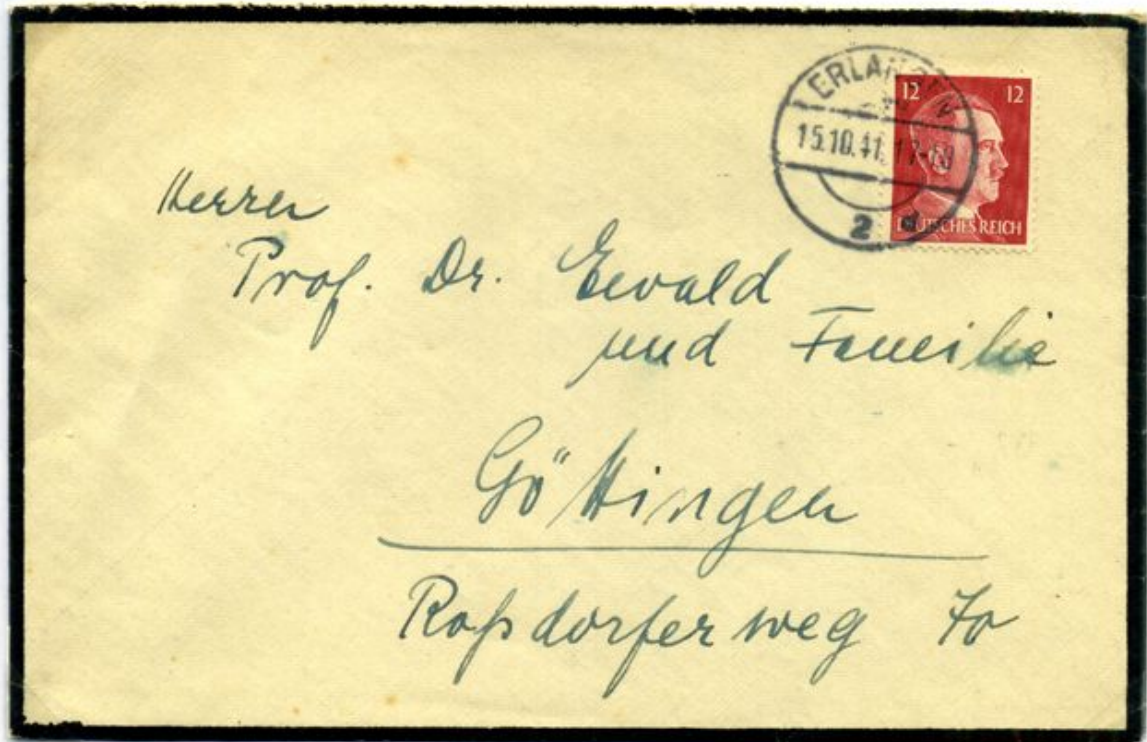 12 12
ERLANGEN
15.10.41. 17-
2 d
DEUTSCHES REICH
Herrn
Prof. Dr. Ewald
und Familie
Göttingen
Roßdorferweg 70